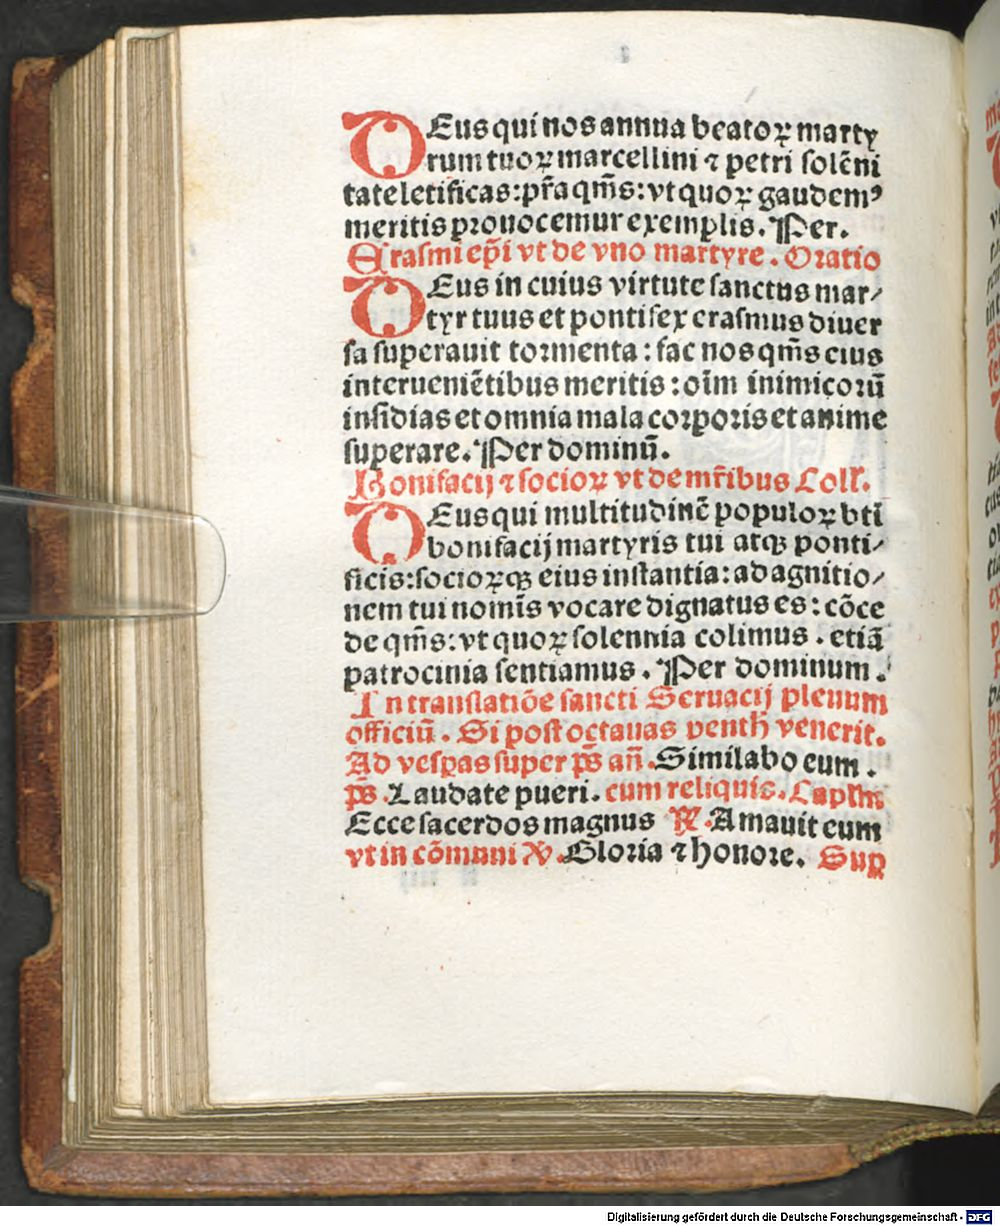 DEus qui nos annua beatoꝝ marty
rum tuoꝝ marcellini ⁊ petri solēni
tate letificas: p̄ra qm̄s: vt quoꝝ gaudemꝰ
meritis prouocemur exemplis. Per.
Erasmi ep̄i vt de vno martyre. Oratio
DEus in cuius virtute sanctus mar⸗
tyr tuus et pontifex erasmus diuer
sa superauit tormenta: fac nos qm̄s eius
interueniētibus meritis: oīm inimicorū
insidias et omnia mala corporis et anime
superare. Per dominū.
Bonifacij ⁊ socioꝝ vt de mr̄ibus Coll'.
DEus qui multitudinē populoꝝ bti
bonifacij martyris tui atqꝫ ponti⸗
ficis: socioꝝqꝫ eius instantia: ad agnitio⸗
nem tui nomīs vocare dignatus es: cōce
de qm̄s: vt quoꝝ solennia colimus. etiā
patrocinia sentiamus. Per dominum.
In translatiōe sancti Seruacij plenum
officiū. Si post octauas penth̄ venerit.
Ad vesp̱as super ps̄ añ. Similabo eum.
ps̄. Laudate pueri. cum reliquis. Caplm̄
Ecce sacerdos magnus ℟. Amauit eum
vt in cōmuni ℣. Gloria ⁊ honore. Sup̱
Digitalisierung gefördert durch die Deutsche Forschungsgemeinschaft - DFG